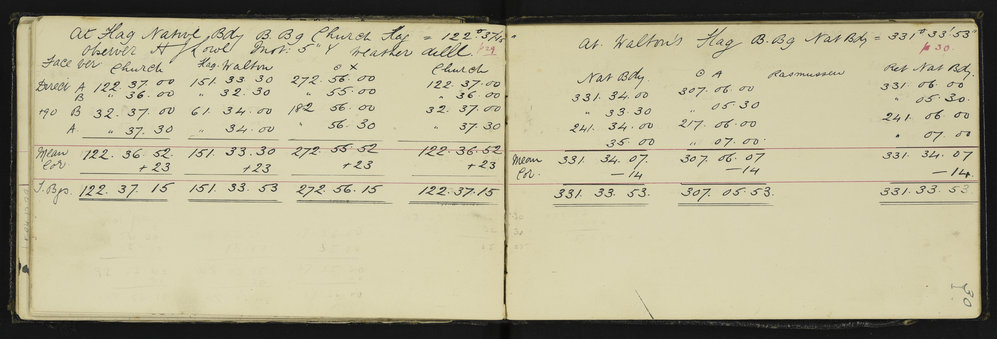 At Flag Native Bdy B. Bg Church Flag = 122° 37' 15"
Observer H J Lowe Inst: 5" Y Weather dull p 29
Face Ver Church Flag. Walton ⊙ X Church
Direct A 122. 37. 00 151. 33. 30 272. 56. 00 122. 37. 00
B " 36. 00 " 32. 30 " 55. 00 " 36. 00
+90 B 32. 37. 00 61. 34. 00 182 56. 00 32. 37. 00
A. " 37. 30 " 34. 00 " 56. 30 " 37. 30
Mean 122. 36. 52. 151. 33. 30 272. 55. 52 122. 36. 52
Cor +23 +23 +23 +23
T. Bgs. 122. 37. 15 151. 33. 53 272. 56. 15 122. 37. 15
At. Walton's Flag B. Bg Nat Bdy = 331° 33' 53"
p 30.
Nat Bdy. ⊙ A Rasmussen Ret. Nat Bdy.
331. 34. 00 307. 06. 00 331. 06. 00
" 33 30 " 05 30 " 05. 30.
241. 34. 00 217. 06. 00 241. 06. 00
35. 00 " 07. 00. " 07. 00
Mean 331. 34. 07. 307. 06. 07 331. 34. 07
Cor. —14 —14 —14.
331. 33. 53. 307. 05. 53. 331. 33. 53.
30